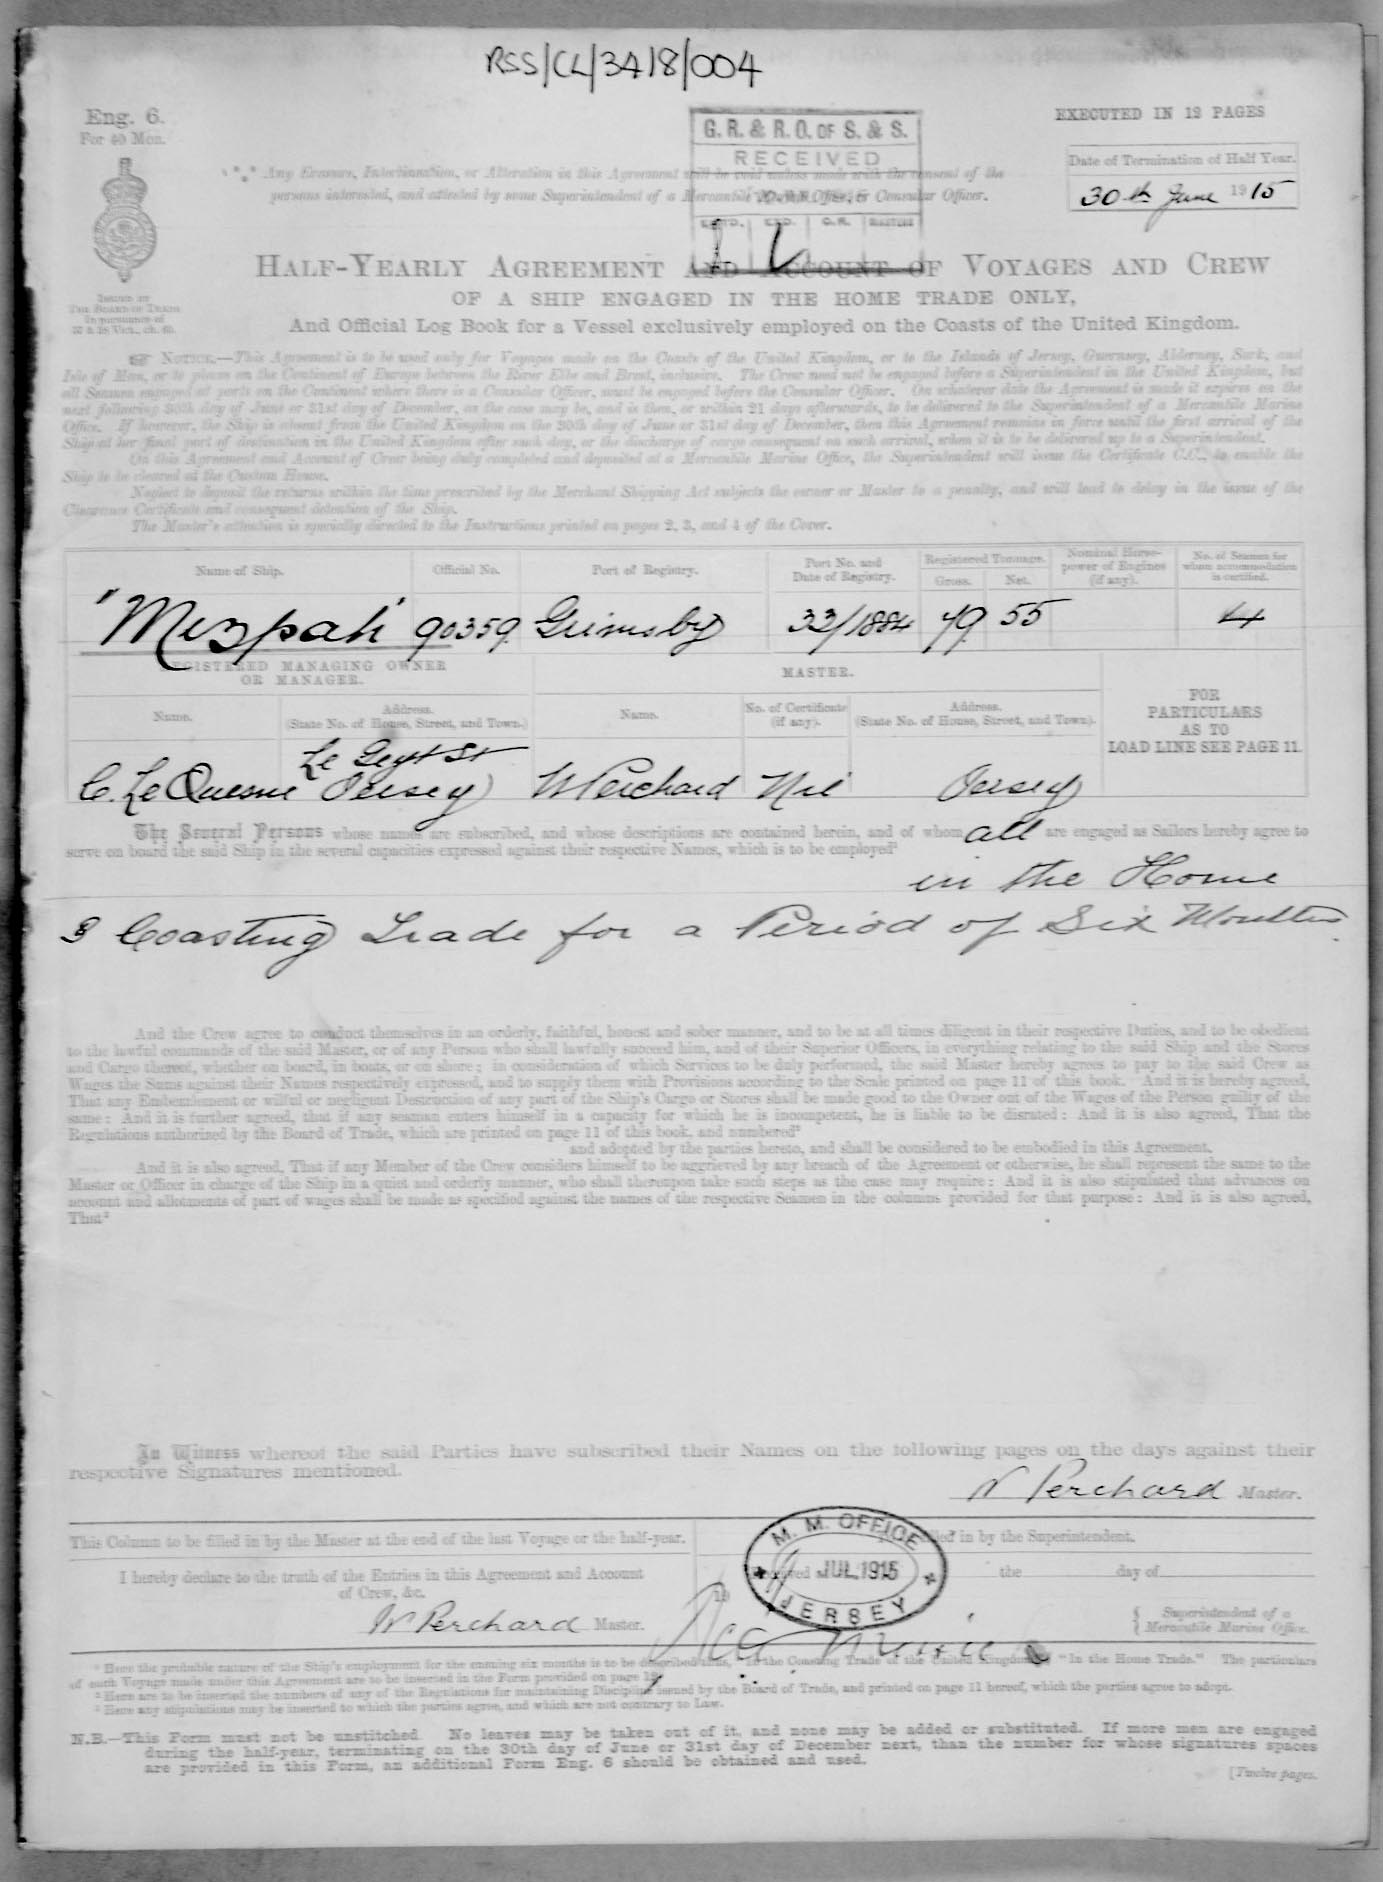 RSS/CL/3418/004
Eng. 6.
For 40 Men.
EXECUTED IN 12 PAGES
G. R. & R. O. OF S. & S.
RECEIVED
Date of Termination of Half Year.
30th June 1915
*** Any Erasure, Interlineation, or Alteration in this Agreement will be void unless made with the consent of the
persons interested, and attested by some Superintendent of a Mercantile Marine Office, or Consular Officer.
HALF-YEARLY AGREEMENT AND ACCOUNT OF VOYAGES AND CREW
OF A SHIP ENGAGED IN THE HOME TRADE ONLY,
ISSUED BY
THE BOARD OF TRADE
In pursuance of
57 & 58 Vict., ch. 60.
And Official Log Book for a Vessel exclusively employed on the Coasts of the United Kingdom.
☞ NOTICE.—This Agreement is to be used only for Voyages made on the Coasts of the United Kingdom, or to the Islands of Jersey, Guernsey, Alderney, Sark, and
Isle of Man, or to places on the Continent of Europe between the River Elbe and Brest, inclusive. The Crew need not be engaged before a Superintendent in the United Kingdom, but
all Seamen engaged at ports on the Continent where there is a Consular Officer, must be engaged before the Consular Officer. On whatever date the Agreement is made it expires on the
next following 30th day of June or 31st day of December, as the case may be, and is then, or within 21 days afterwards, to be delivered to the Superintendent of a Mercantile Marine
Office. If however, the Ship is absent from the United Kingdom on the 30th day of June or 31st day of December, then this Agreement remains in force until the first arrival of the
Ship at her final port of destination in the United Kingdom after such day, or the discharge of cargo consequent on such arrival, when it is to be delivered up to a Superintendent.
On this Agreement and Account of Crew being duly completed and deposited at a Mercantile Marine Office, the Superintendent will issue the Certificate C.C., to enable the
Ship to be cleared at the Custom House.
Neglect to deposit the returns within the time prescribed by the Merchant Shipping Act subjects the owner or Master to a penalty, and will lead to delay in the issue of the
Clearance Certificate and consequent detention of the Ship.
The Master's attention is specially directed to the Instructions printed on pages 2, 3, and 4 of the Cover.
Name of Ship. Official No. Port of Registry. Port No. and Date of Registry. Registered Tonnage. Gross. Net. Nominal Horse-power of Engines (if any). No. of Seamen for whom accommodation is certified.
"Mezpah" 90359 Grimsby 33/1884 79 55 4
REGISTERED MANAGING OWNER
OR MANAGER.
MASTER.
Name. Address. (State No. of House, Street, and Town.) Name. No. of Certificate (if any). Address. (State No. of House, Street, and Town).
FOR
PARTICULARS
AS TO
LOAD LINE SEE PAGE 11.
Le Geyt St
C. Le Quesne Jersey W Perchard Nil Jersey
The Several Persons whose names are subscribed, and whose descriptions are contained herein, and of whom all are engaged as Sailors hereby agree to
serve on board the said Ship in the several capacities expressed against their respective Names, which is to be employed¹
in the Home
& Coasting Trade for a Period of Six Months.
And the Crew agree to conduct themselves in an orderly, faithful, honest and sober manner, and to be at all times diligent in their respective Duties, and to be obedient
to the lawful commands of the said Master, or of any Person who shall lawfully succeed him, and of their Superior Officers, in everything relating to the said Ship and the Stores
and Cargo thereof, whether on board, in boats, or on shore; in consideration of which Services to be duly performed, the said Master hereby agrees to pay to the said Crew as
Wages the Sums against their Names respectively expressed, and to supply them with Provisions according to the Scale printed on page 11 of this book. And it is hereby agreed,
That any Embezzlement or wilful or negligent Destruction of any part of the Ship's Cargo or Stores shall be made good to the Owner out of the Wages of the Person guilty of the
same: And it is further agreed, that if any seaman enters himself in a capacity for which he is incompetent, he is liable to be disrated: And it is also agreed, That the
Regulations authorised by the Board of Trade, which are printed on page 11 of this book, and numbered²
and adopted by the parties hereto, and shall be considered to be embodied in this Agreement.
And it is also agreed, That if any Member of the Crew considers himself to be aggrieved by any breach of the Agreement or otherwise, he shall represent the same to the
Master or Officer in charge of the Ship in a quiet and orderly manner, who shall thereupon take such steps as the case may require: And it is also stipulated that advances on
account and allotments of part of wages shall be made as specified against the names of the respective Seamen in the columns provided for that purpose: And it is also agreed,
That³
In Witness whereof the said Parties have subscribed their Names on the following pages on the days against their
respective Signatures mentioned.
W Perchard Master.
This Column to be filled in by the Master at the end of the last Voyage or the half-year.
filled in by the Superintendent.
I hereby declare to the truth of the Entries in this Agreement and Account
of Crew, &c.
W Perchard Master.
M. M. OFFICE
JUL 1915
JERSEY
the day of
19
Superintendent of a
Mercantile Marine Office.
¹ Here the probable nature of the Ship's employment for the ensuing six months is to be described thus, "In the Coasting Trade of the United Kingdom," "In the Home Trade." The particulars
of each Voyage made under this Agreement are to be inserted in the Form provided on page 12.
² Here are to be inserted the numbers of any of the Regulations for maintaining Discipline issued by the Board of Trade, and printed on page 11 hereof, which the parties agree to adopt.
³ Here any stipulations may be inserted to which the parties agree, and which are not contrary to Law.
N.B.—This Form must not be unstitched. No leaves may be taken out of it, and none may be added or substituted. If more men are engaged
during the half-year, terminating on the 30th day of June or 31st day of December next, than the number for whose signatures spaces
are provided in this Form, an additional Form Eng. 6 should be obtained and used.
[Twelve pages.